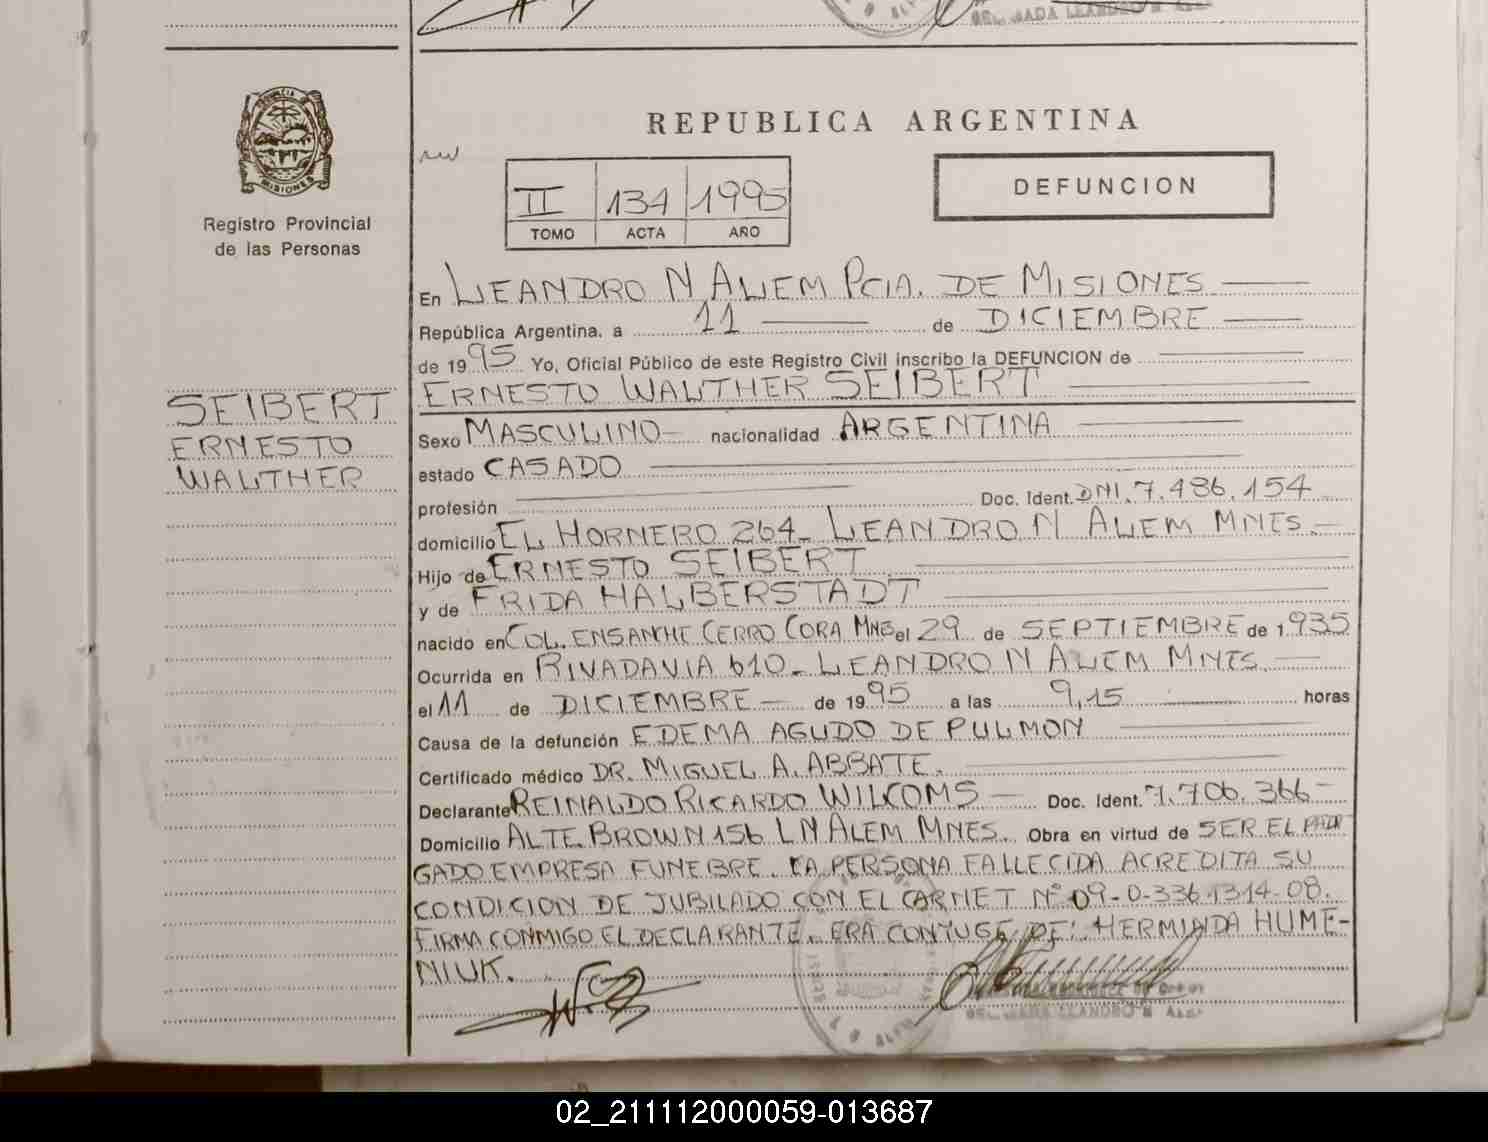 PROVINCIA DE
MISIONES
Registro Provincial
de las Personas
SEIBERT
ERNESTO
WALTHER
REPUBLICA ARGENTINA
II 134 1995
TOMO ACTA AÑO
DEFUNCION
En LEANDRO N ALEM PCIA. DE MISIONES
República Argentina, a 11 de DICIEMBRE
de 1995 Yo, Oficial Público de este Registro Civil inscribo la DEFUNCION de
ERNESTO WALTHER SEIBERT
Sexo MASCULINO nacionalidad ARGENTINA
estado CASADO
profesión Doc. Ident. DNI. 7.486.154
domicilio EL HORNERO 264- LEANDRO N ALEM MNES.
Hijo de ERNESTO SEIBERT
y de FRIDA HALBERSTADT
nacido en COL. ENSANCHE CERRO CORA MNES el 29 de SEPTIEMBRE de 1935
Ocurrida en RIVADAVIA 610- LEANDRO N ALEM MNES.
el 11 de DICIEMBRE de 1995 a las 9,15 horas
Causa de la defunción EDEMA AGUDO DE PULMON
Certificado médico DR. MIGUEL A. ABBATE.
Declarante REINALDO RICARDO WILCOMS Doc. Ident. 7.706.366
Domicilio ALTE. BROWN 156 L N ALEM MNES. Obra en virtud de SER EL
GADO EMPRESA FUNEBRE. LA PERSONA FALLECIDA ACREDITA SU
CONDICION DE JUBILADO CON EL CARNET Nº 09-0-3361314-08.
FIRMA CONMIGO EL DECLARANTE. ERA CONYUGE DE: HERMINDA HUME-
NIUK.
02_211112000059-013687